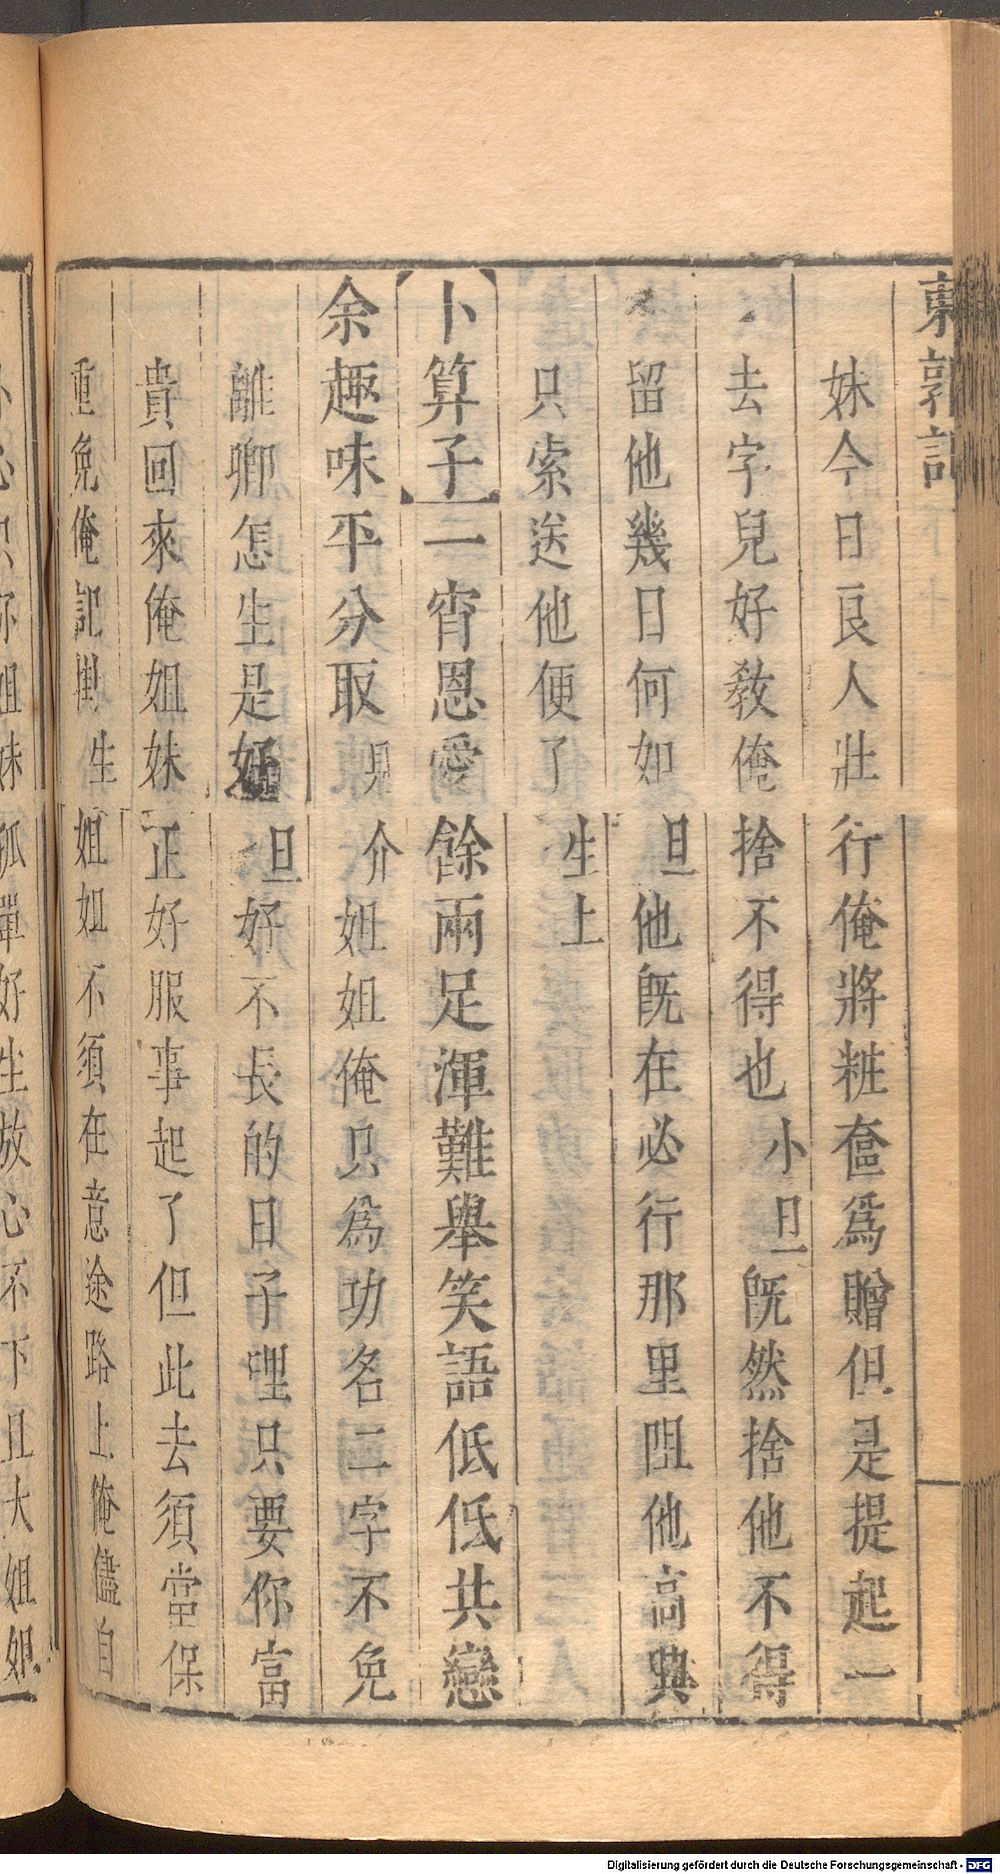 東郭記
妹今日良人壯行俺將粧奩爲贈但是提起一
去字兒好教俺捨不得也小旦既然捨他不得
留他幾日何如旦他既在必行那里阻他高興
只索送他便了生上
【卜算子】一宵恩愛餘兩足渾難舉笑語低低共戀
余趣味平分取見介姐姐俺只爲功名二字不免
離卿怎生是好旦好不長的日子哩只要你富
貴回來俺姐妹正好服事起了但此去須當保
重免俺記掛生姐姐不須在意途路上俺儘自
小心只你姐妹孤單好生放心不下且大姐姐
Digitalisierung gefördert durch die Deutsche Forschungsgemeinschaft - DFG